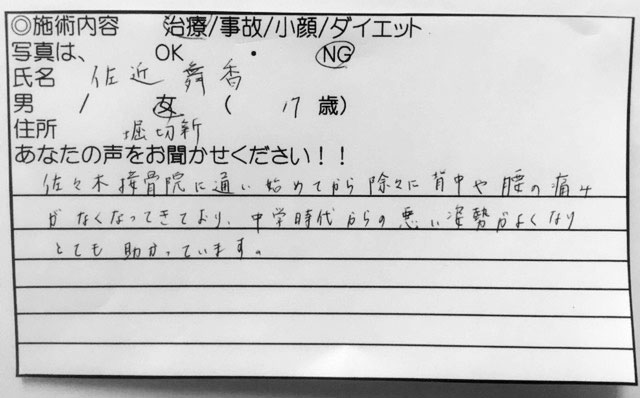 ◎施術内容 治療/事故/小顔/ダイエット
写真は、 OK ・ NG
氏名 佐近 舞香
男 / 女 ( 17 歳)
住所 堀切新
あなたの声をお聞かせください！！
佐々木接骨院に通い始めてから除々に背中や腰の痛み
がなくなってきており、中学時代からの悪い姿勢がよくなり
とても助かっています。